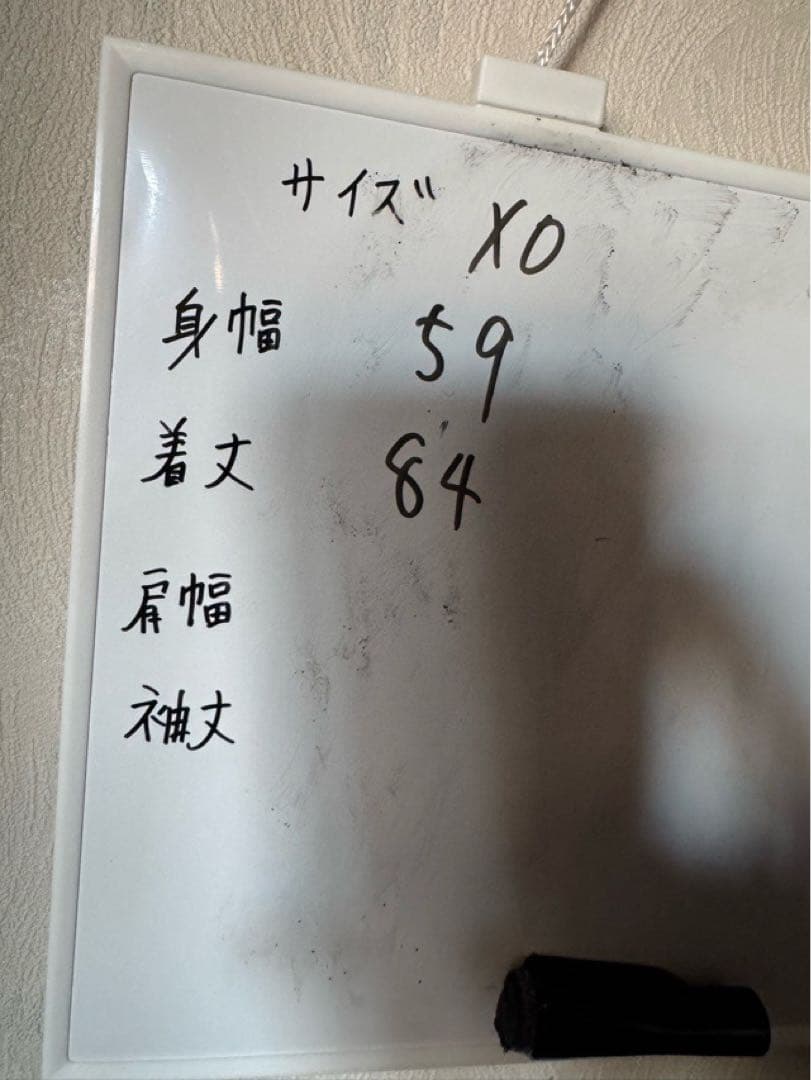 サイズ XO
身幅 59
着丈 84
肩幅
袖丈